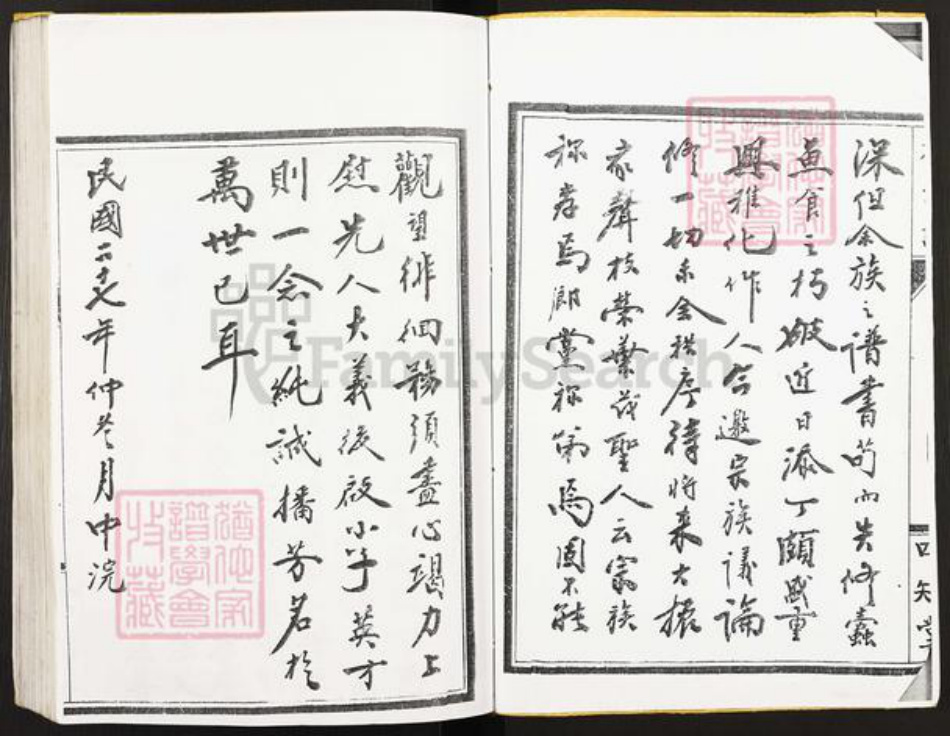 深但余族之譜書苟而失修蠹
魚食之朽敗近日添丁頗盛重
興雅化作人合邀宗族議論
修一切永全秩序待將來大振
家聲枝榮葉茂聖人云宗族
称孝焉鄉黨称弟焉固不能
觀望徘徊務須盡心竭力上
慰先人大義後啟小子英才
則一念之純誠播芳名於
萬世已耳
民國二十七年仲冬月中浣
FamilySearch